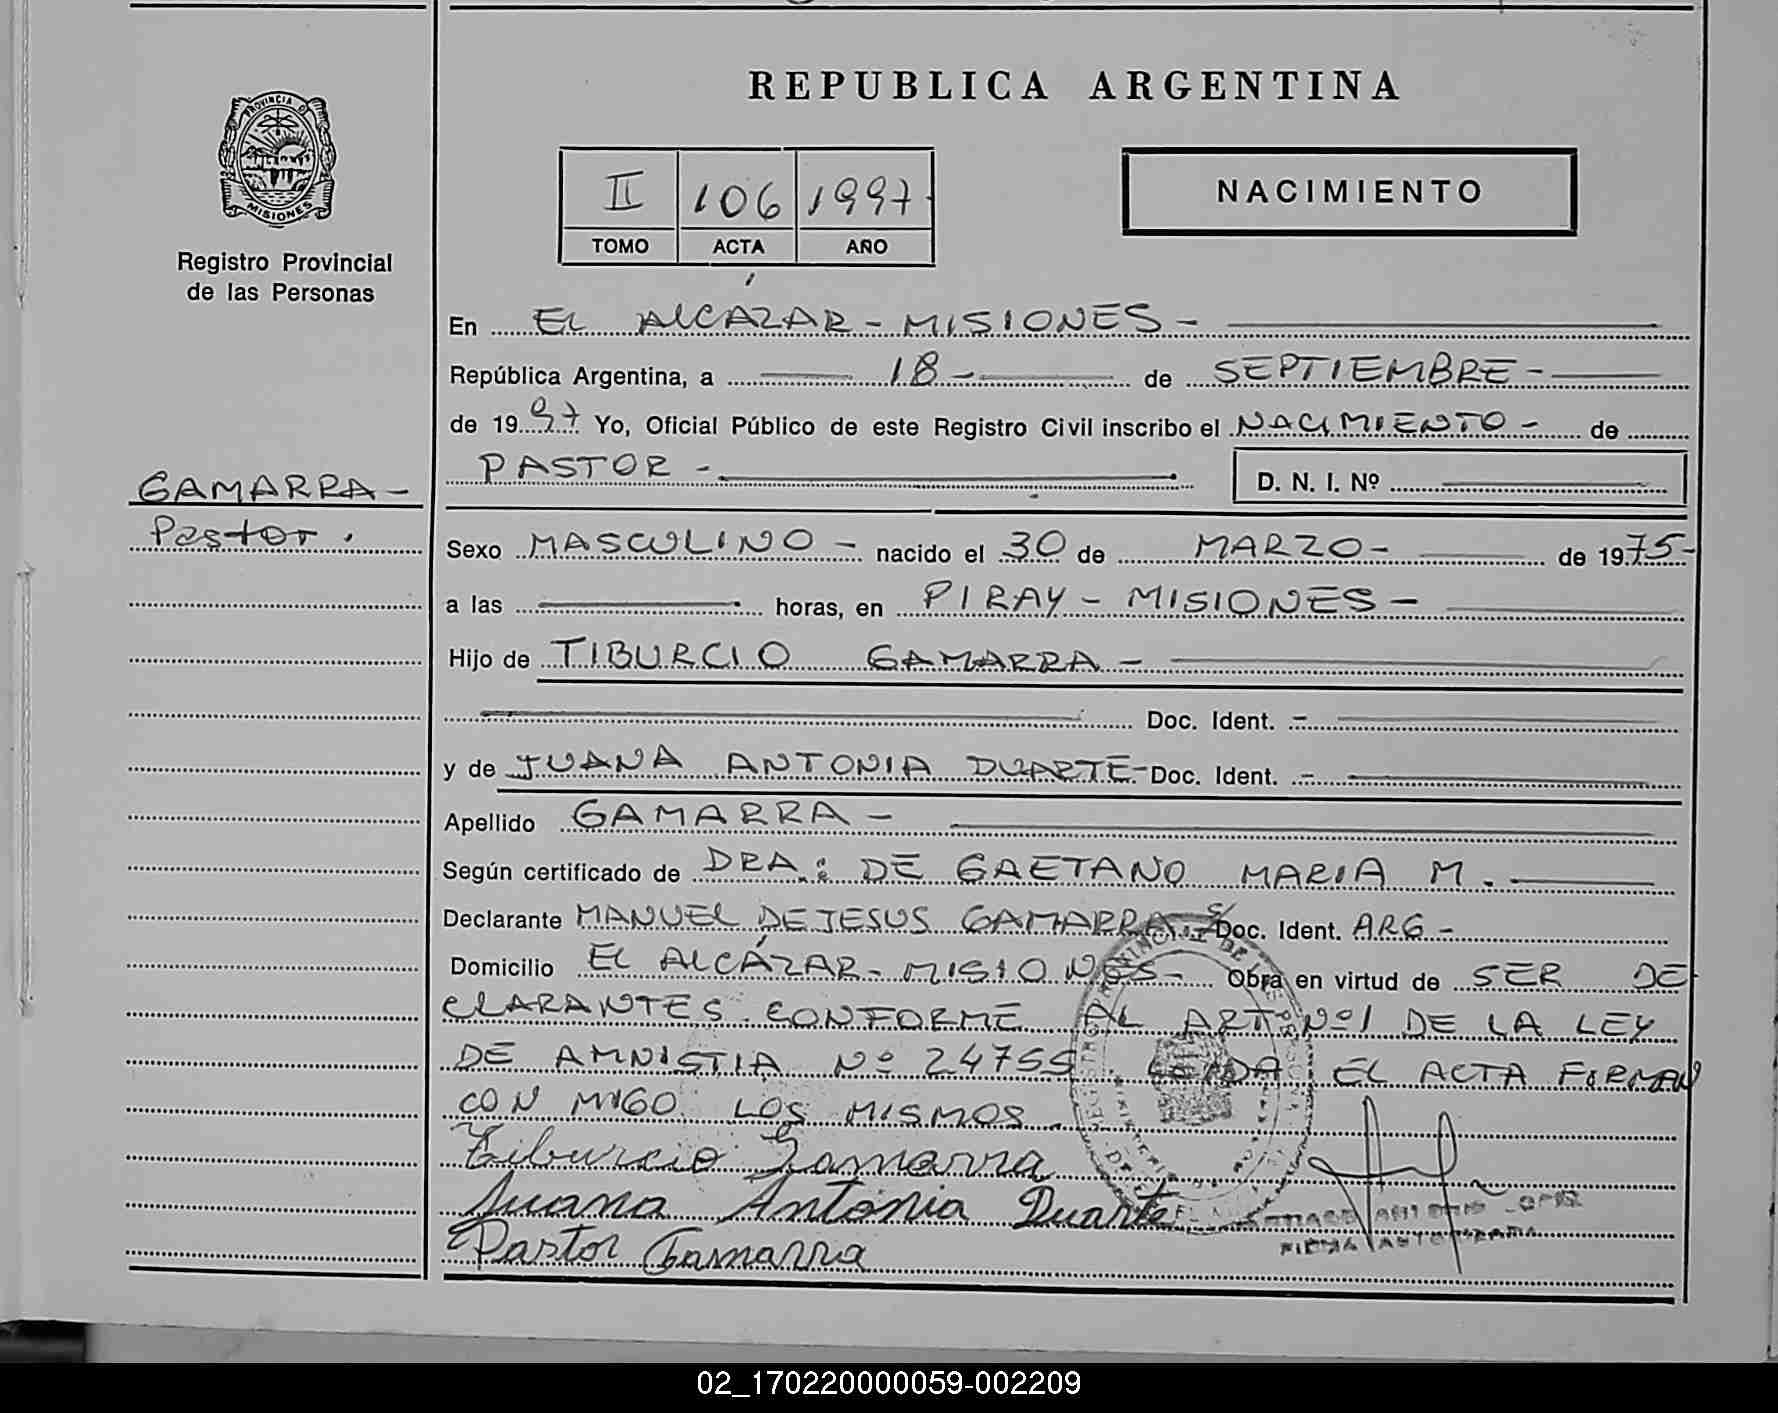 REPUBLICA ARGENTINA
PROVINCIA DE
MISIONES
Registro Provincial
de las Personas
II 106 1997
TOMO ACTA AÑO
NACIMIENTO
En EL ALCÁZAR - MISIONES -
República Argentina, a 18 - de SEPTIEMBRE -
de 1997 Yo, Oficial Público de este Registro Civil inscribo el NACIMIENTO - de
PASTOR -
D. N. I. Nº
GAMARRA -
Pastor.
Sexo MASCULINO - nacido el 30 de MARZO - de 1975 -
a las horas, en PIRAY - MISIONES -
Hijo de TIBURCIO GAMARRA -
Doc. Ident. -
y de JUANA ANTONIA DUARTE - Doc. Ident. -
Apellido GAMARRA -
Según certificado de DRA.: DE GAETANO MARIA M.
Declarante MANUEL DE JESUS GAMARRA Doc. Ident. ARG -
Domicilio EL ALCÁZAR - MISIONES - Obra en virtud de SER DE
CLARANTES CONFORME AL ART Nº1 DE LA LEY
DE AMNISTIA Nº 24755 LEIDA EL ACTA FIRMAN
CON MIGO LOS MISMOS.
Tiburcio Gamarra
Juana Antonia Duarte
Pastor Gamarra
FIRMA AUTORIZADA
02_170220000059-002209